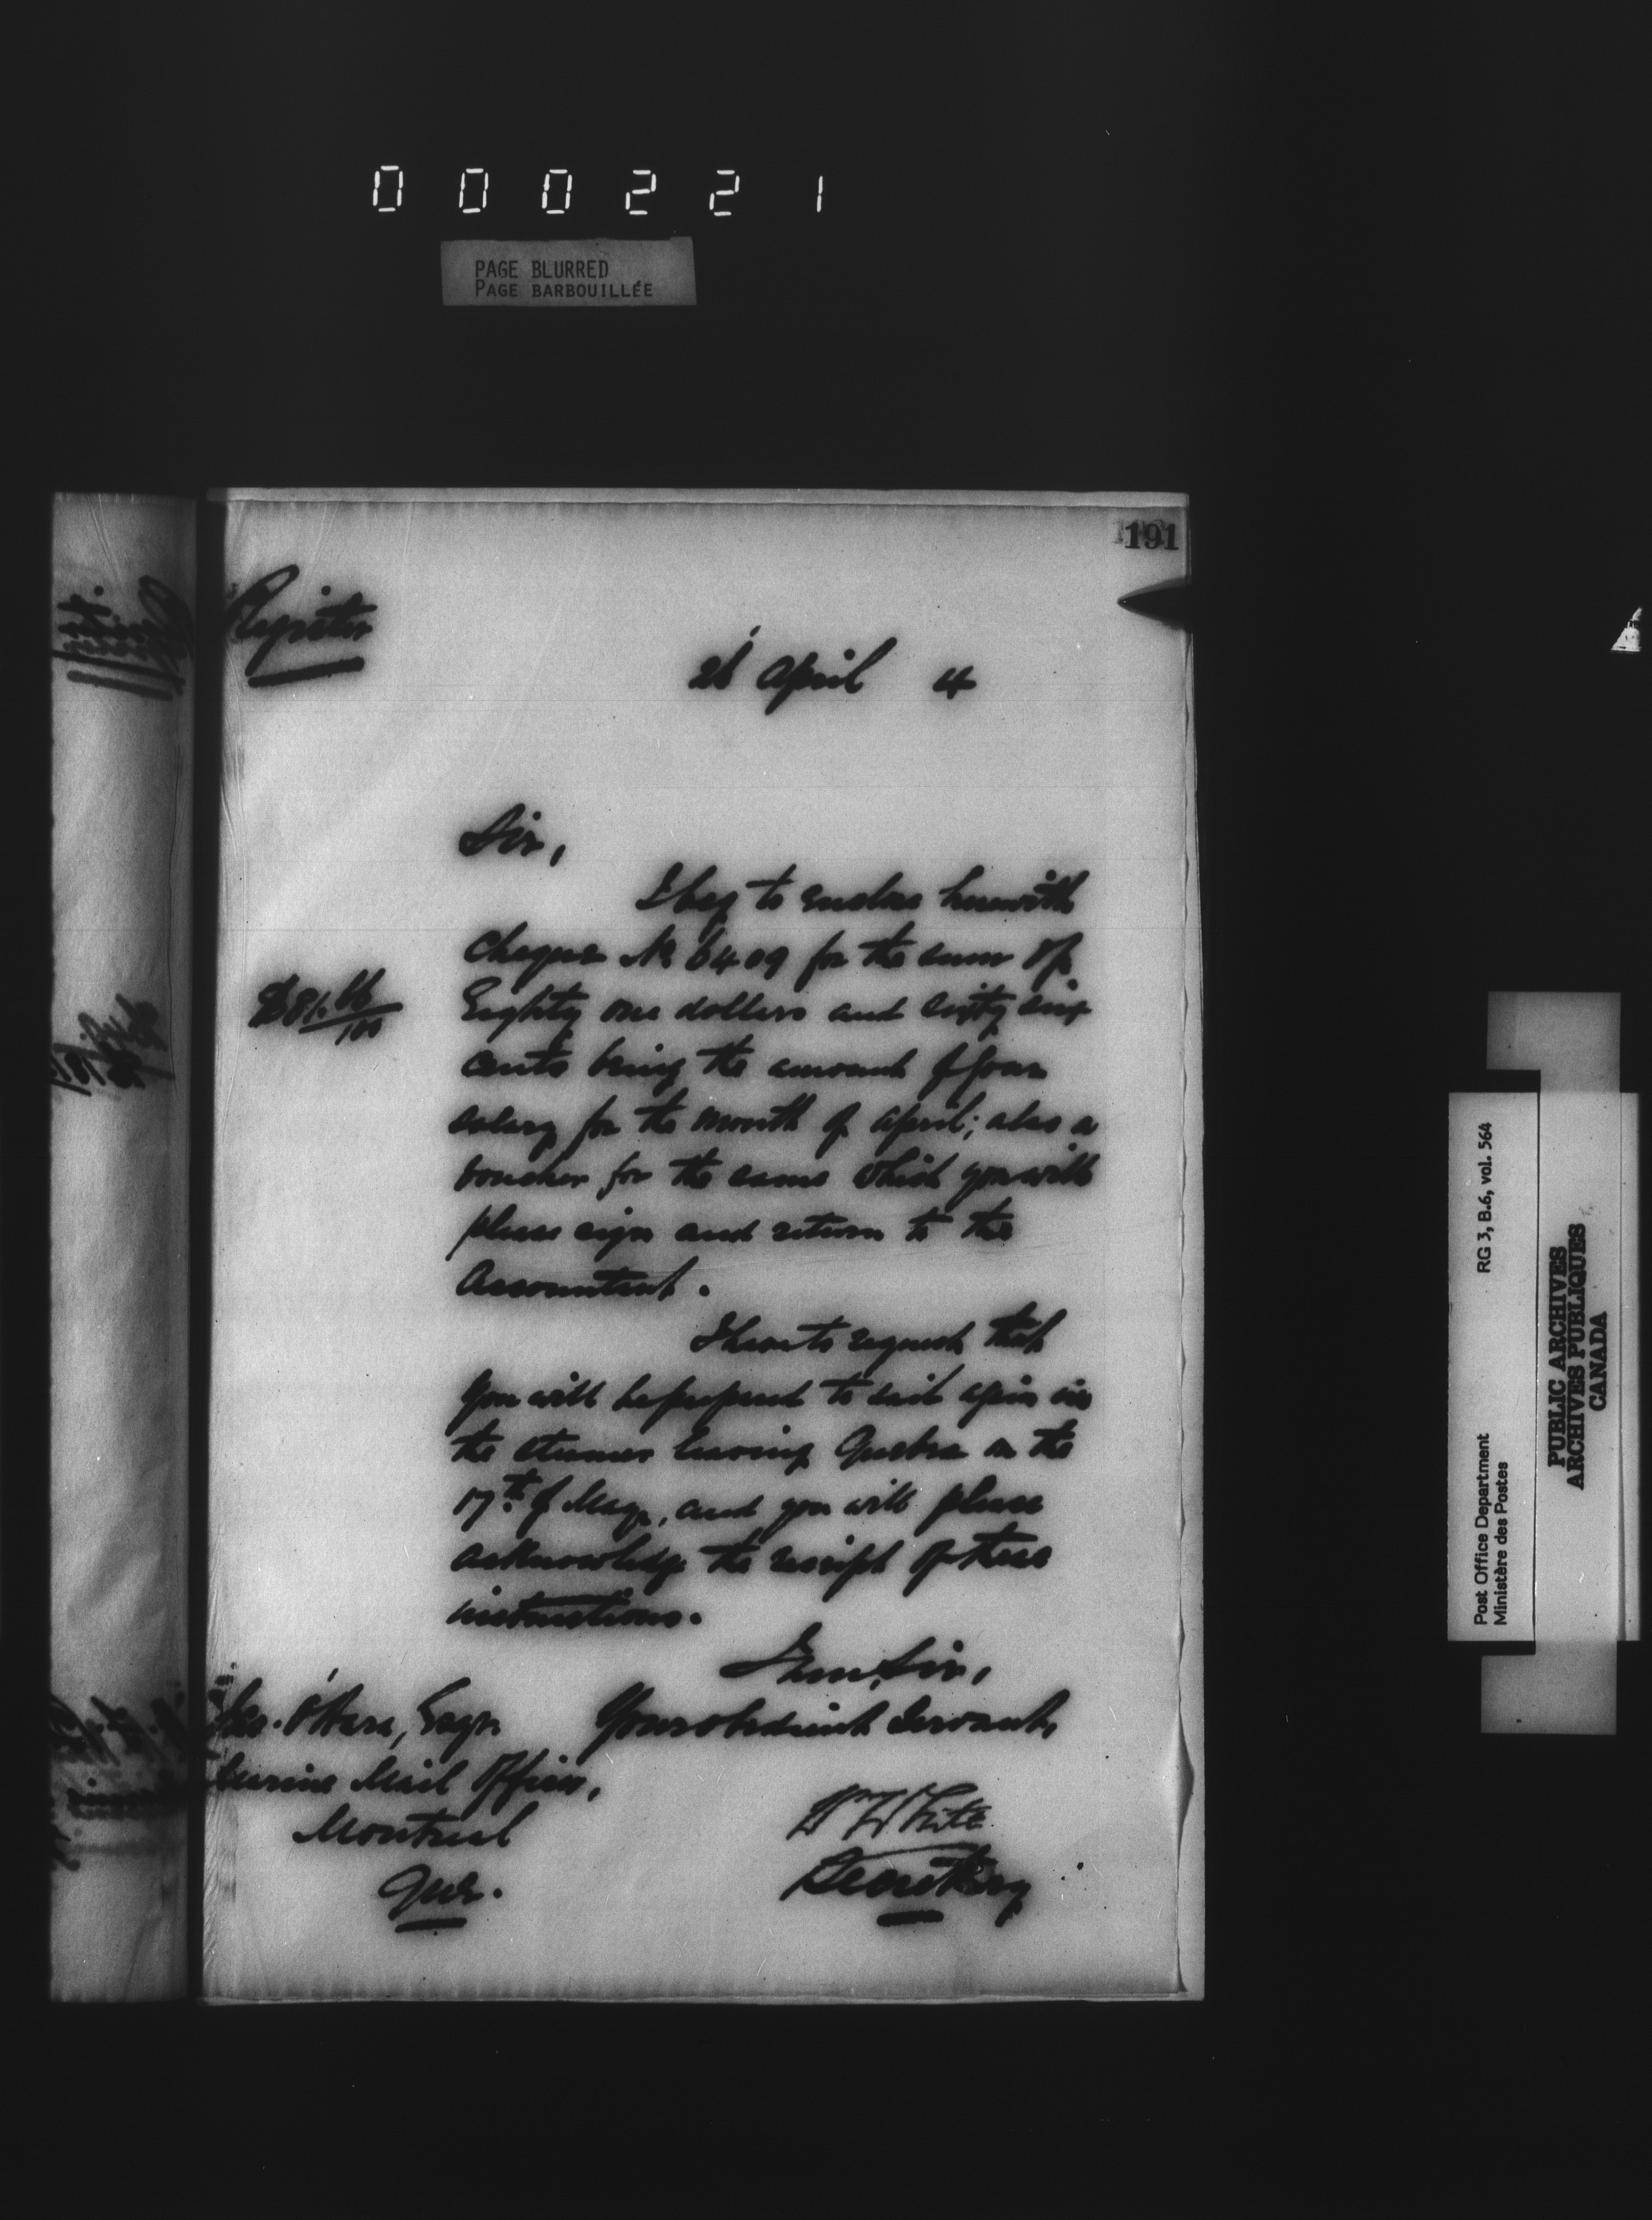 000221
PAGE BLURRED
PAGE BARBOUILLÉE
191
Register
April 4
Sir,
I beg to enclose herewith
Cheque No 6409 for the sum of
$81.66/100
Eighty one dollars and sixty six
cents being the amount of your
salary for the month of April; also a
voucher for the same which you will
please sign and return to the
Accountant.
I have to request that
you will be prepared to sail again in
the steamer leaving Quebec on the
17th of May, and you will please
acknowledge the receipt of these
instructions.
I am, Sir,
Your obedient Servant,
O'Hara, Esqr.
Marine Mail Officer,
Montreal
Que.
Wm White
Secretary
Post Office Department
Ministère des Postes
RG 3, B.6, vol. 564
PUBLIC ARCHIVES
ARCHIVES PUBLIQUES
CANADA